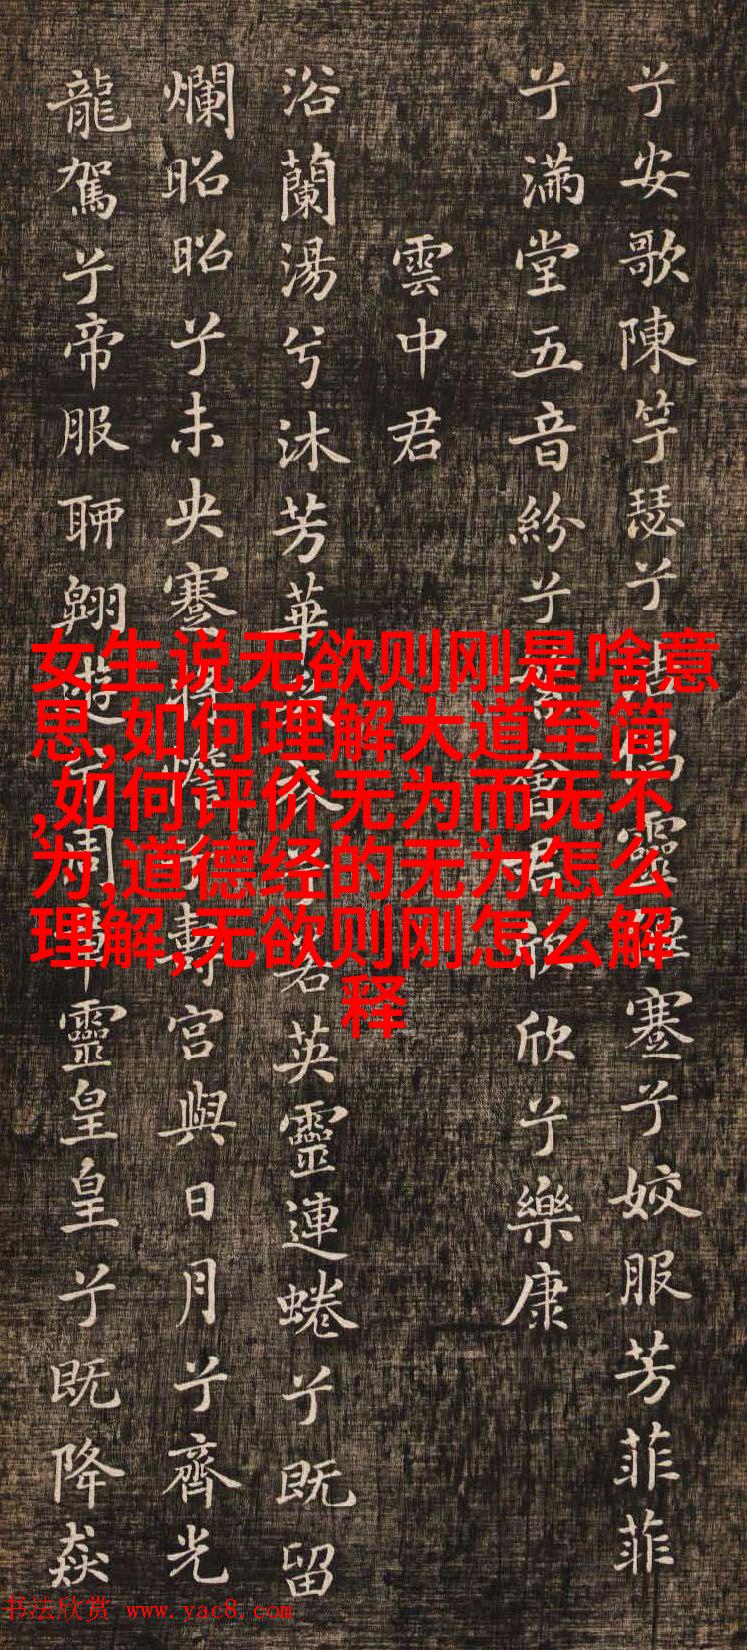 兮安歌陳竽瑟兮靈蹇兮姣服芳菲菲
兮滿堂五音紛兮會君欣欣兮樂康
雲中君
浴蘭湯兮沐芳華衣若英靈連蜷兮既留
爛昭昭兮未央蹇將憺宮與日月兮齊光
龍駕兮帝服聊翱遊周章靈皇皇兮既降猋
女生说无欲则刚是啥意
思,如何理解大道至简
,如何评价无为而无不
为,道德经的无为怎么
理解,无欲则刚怎么解
释
书法欣赏 www.yac8.com